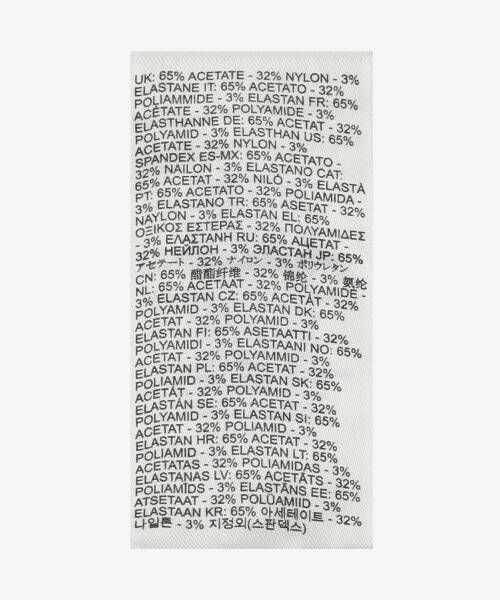 UK: 65% ACETATE - 32% NYLON - 3%
ELASTANE IT: 65% ACETATO - 32%
POLIAMMIDE - 3% ELASTAN FR: 65%
ACÉTATE - 32% POLYAMIDE - 3%
ELASTHANNE DE: 65% ACETAT - 32%
POLYAMID - 3% ELASTHAN US: 65%
ACETATE - 32% NYLON - 3%
SPANDEX ES-MX: 65% ACETATO -
32% NAILON - 3% ELASTANO CAT:
65% ACETAT - 32% NILÓ - 3% ELASTÀ
PT: 65% ACETATO - 32% POLIAMIDA -
3% ELASTANO TR: 65% ASETAT - 32%
NAYLON - 3% ELASTAN EL: 65%
ΟΞΙΚΟΣ ΕΣΤΕΡΑΣ - 32% ΠΟΛΥΑΜΙΔΕΣ
- 3% ΕΛΑΣΤΑΝΗ RU: 65% АЦЕТАТ -
32% НЕЙЛОН - 3% ЭЛАСТАН JP: 65%
アセテート - 32% ナイロン - 3% ポリウレタン
CN: 65% 醋酯纤维 - 32% 锦纶 - 3% 氨纶
NL: 65% ACETAAT - 32% POLYAMIDE -
3% ELASTAN CZ: 65% ACETÁT - 32%
POLYAMID - 3% ELASTAN DK: 65%
ACETAT - 32% POLYAMID - 3%
ELASTAN FI: 65% ASETAATTI - 32%
POLYAMIDI - 3% ELASTAANI NO: 65%
ACETAT - 32% POLYAMMID - 3%
ELASTAN PL: 65% ACETAT - 32%
POLIAMID - 3% ELASTAN SK: 65%
ACETÁT - 32% POLYAMID - 3%
ELASTÁN SE: 65% ACETAT - 32%
POLYAMID - 3% ELASTAN SI: 65%
ACETAT - 32% POLIAMID - 3%
ELASTAN HR: 65% ACETAT - 32%
POLIAMID - 3% ELASTAN LT: 65%
ACETATAS - 32% POLIAMIDAS - 3%
ELASTANAS LV: 65% ACETĀTS - 32%
POLIAMĪDS - 3% ELASTĀNS EE: 65%
ATSETAAT - 32% POLÜAMIID - 3%
ELASTAAN KR: 65% 아세테이트 - 32%
나일론 - 3% 지정외(스판덱스)